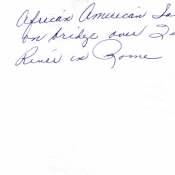 African American So
on bridge over
River in Rome